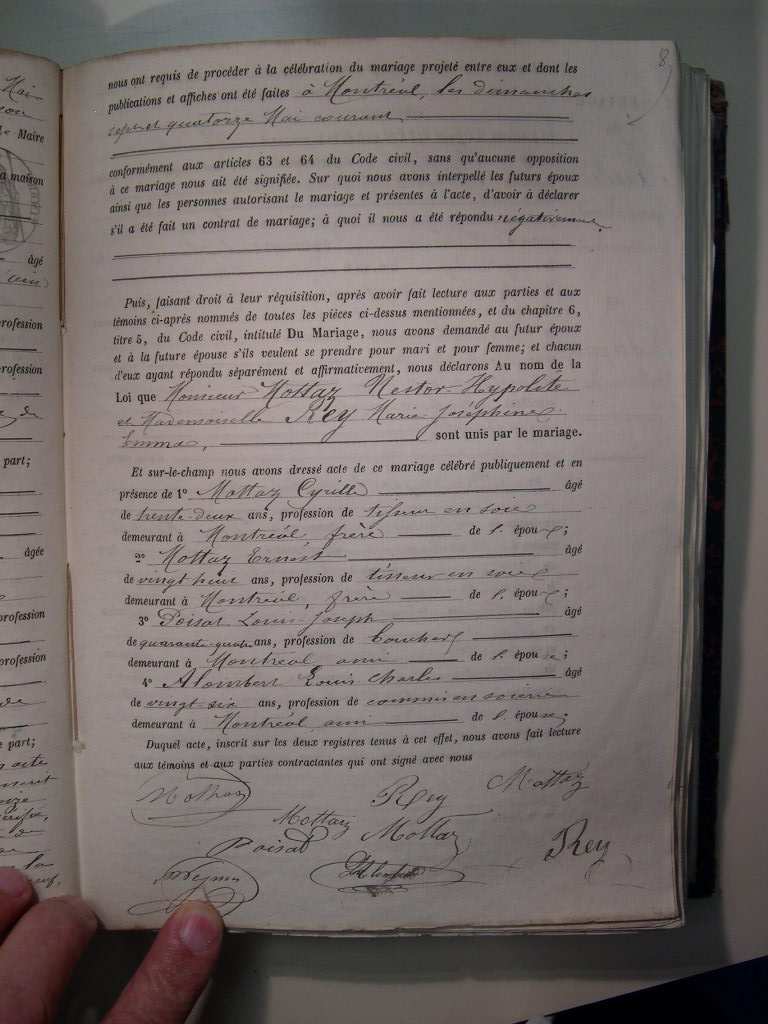 Mai
Maire
la maison
âgé
profession
profession
part;
âgée
profession
profession
de
e part;
acte
8
nous ont requis de procéder à la célébration du mariage projeté entre eux et dont les
publications et affiches ont été faites à Montréal, les dimanches
sept et quatorze Mai courant
conformément aux articles 63 et 64 du Code civil, sans qu'aucune opposition
à ce mariage nous ait été signifiée. Sur quoi nous avons interpellé les futurs époux
ainsi que les personnes autorisant le mariage et présentes à l'acte, d'avoir à déclarer
s'il a été fait un contrat de mariage; à quoi il nous a été répondu négativement.
Puis, faisant droit à leur réquisition, après avoir fait lecture aux parties et aux
témoins ci-après nommés de toutes les pièces ci-dessus mentionnées, et du chapitre 6,
titre 5, du Code civil, intitulé Du Mariage, nous avons demandé au futur époux
et à la future épouse s'ils veulent se prendre pour mari et pour femme; et chacun
d'eux ayant répondu séparément et affirmativement, nous déclarons Au nom de la
Loi que Monsieur Mottaz Nestor-Hypolite
et Mademoiselle Rey Marie Joséphine
Emma, sont unis par le mariage.
Et sur-le-champ nous avons dressé acte de ce mariage célébré publiquement et en
présence de 1° Mottaz Cyrille âgé
de trente-deux ans, profession de tisseur en soie
demeurant à Montréal, frère de l. épou ;
2° Mottaz Ernest âgé
de vingt neuf ans, profession de tisseur en soie
demeurant à Montréal, frère de l. épou ;
3° Poisat Louis Joseph âgé
de quarante-quatre ans, profession de boucher
demeurant à Montréal ami de l. épou ;
4° Alombert Louis Charles âgé
de vingt-six ans, profession de commis en soierie
demeurant à Montréal, ami de l. épou ;
Duquel acte, inscrit sur les deux registres tenus à cet effet, nous avons fait lecture
aux témoins et aux parties contractantes qui ont signé avec nous
Mottaz Rey Mottaz
Mottaz Mottaz
Poisat Rey